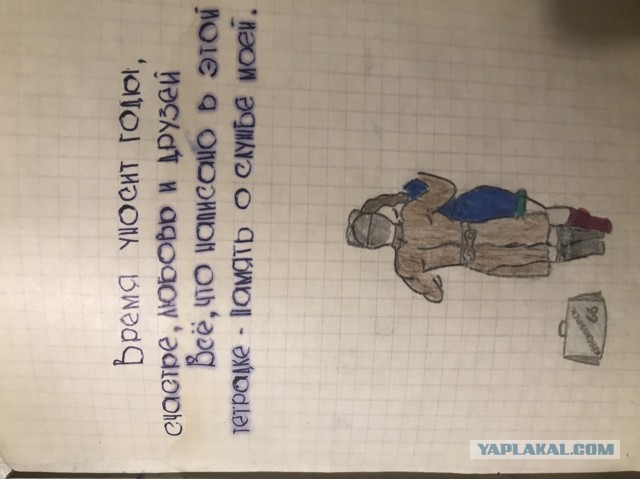 Время уносит годы,
счастье, любовь и друзей
Всё, что написано в этой
тетрадке - память о службе моей.
66
YAPLAKAL.COM